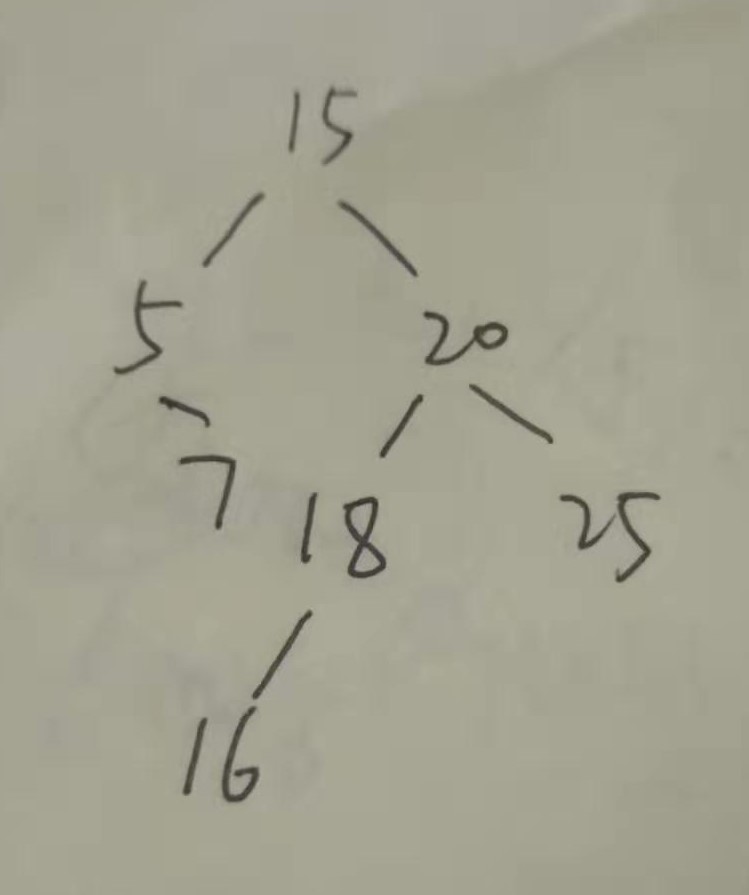 15
5 20
7 18 25
16